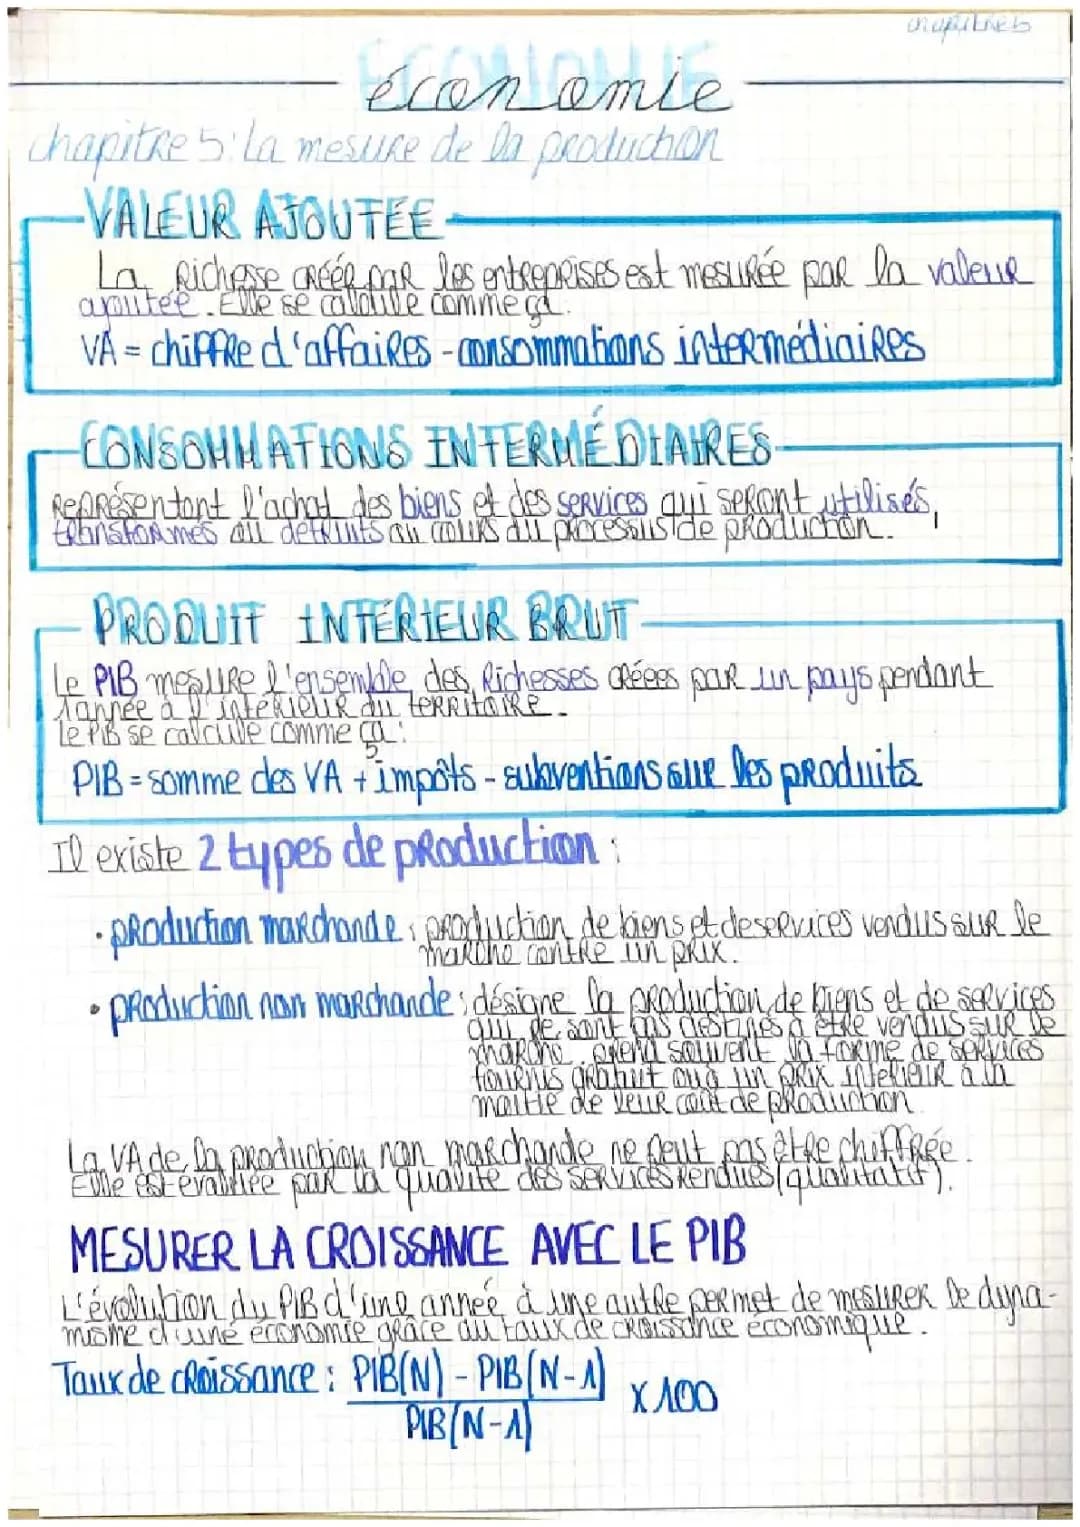 chapitre 5
économie
chapitre 5: La mesure de la production
VALEUR AJOUTÉE
La Richesse créée par les entreprises est mesurée par la valeur
ajoutée. Elle se calcule comme ça.
VA = chiffre d'affaires - consommations intermédiaires
CONSOMMATIONS INTERMÉDIAIRES
Représentent l'achat des biens et des services qui seront utilisés,
transformés ou détruits au cours du processus de production.
PRODUIT INTÉRIEUR BRUT
Le PIB mesure l'ensemble des Richesses créées par un pays pendant
1 année à l'intérieur du territoire.
Le PIB se calcule comme ça:
PIB = somme des VA + impôts - subventions sur les produits
Il existe 2 types de production :
• production marchande : production de biens et de services vendus sur le
marché contre un prix.
• production non marchande : désigne la production de biens et de services
qui ne sont pas destinés à être vendus sur le
marché. prend souvent la forme de services
fournis gratuit ou à un prix inférieur à la
moitié de leur coût de production
La VA de la production non marchande ne peut pas être chiffrée.
Elle est évaluée par la qualité des services rendues (qualitatif).
MESURER LA CROISSANCE AVEC LE PIB
L'évolution du PIB d'une année à une autre permet de mesurer le dyna-
misme d'une économie grâce au taux de croissance économique.
Taux de croissance : PIB(N) - PIB(N-1) X 100
PIB(N-1)